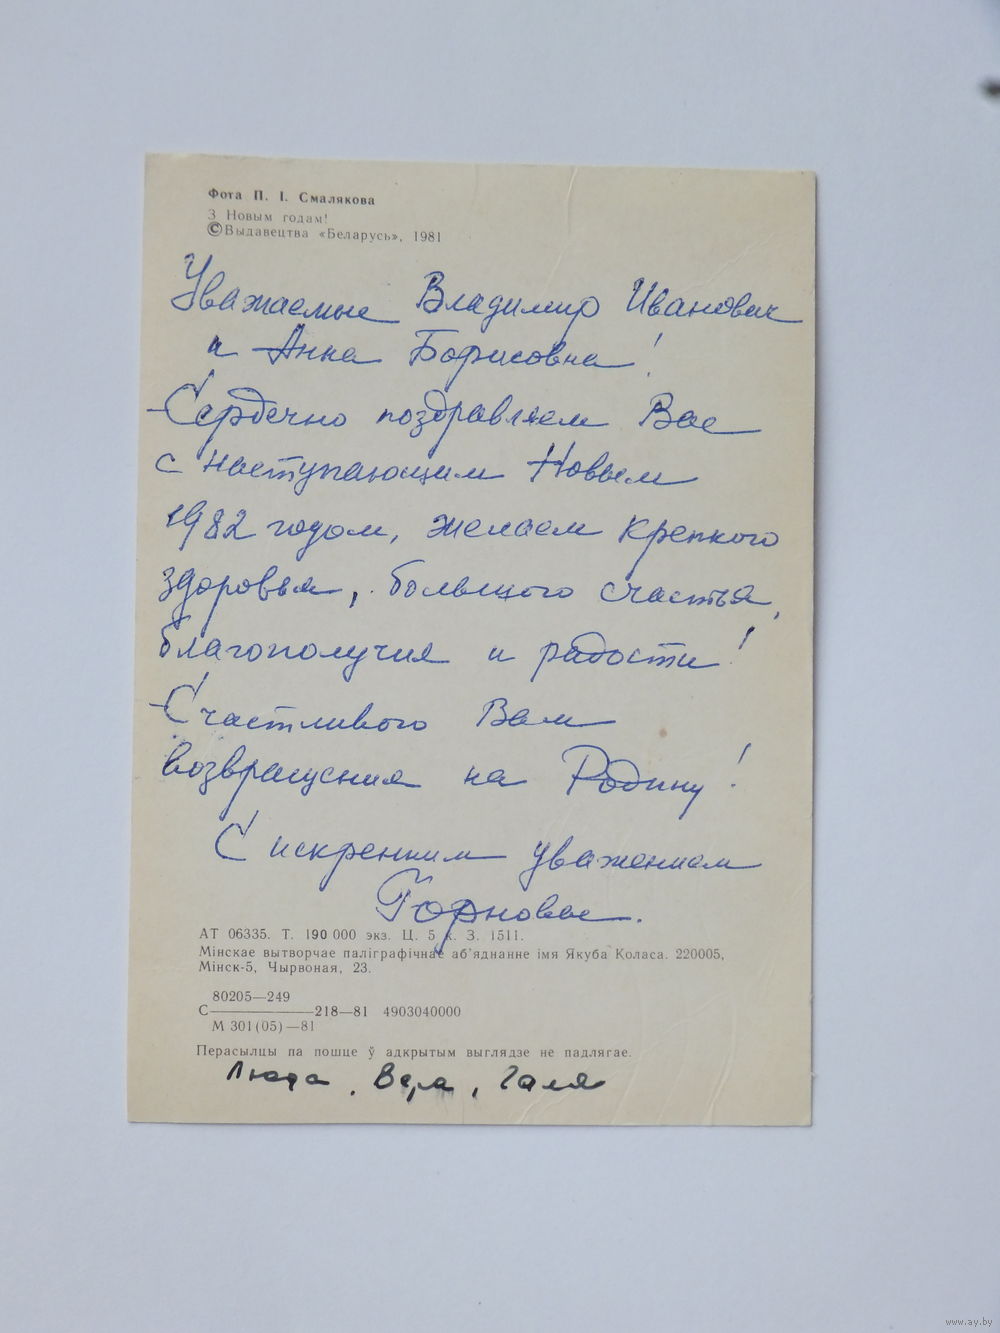 Фота П. І. Смалякова
З Новым годам!
©Выдавецтва «Беларусь», 1981
Уважаемые Владимир Иванович
и Анна Борисовна!
Сердечно поздравляем Вас
с наступающим Новым
1982 годом, желаем крепкого
здоровья, большого счастья,
благополучия и радости!
Счастливого Вам
возвращения на Родину!
С искренним уважением
Горновы.
АТ 06335. Т. 190 000 экз. Ц. 5 к. З. 1511.
Мінскае вытворчае паліграфічнае аб'яднанне імя Якуба Коласа. 220005,
Мінск-5, Чырвоная, 23.
80205—249
С————218—81 4903040000
М 301(05)—81
Перасылцы па пошце ў адкрытым выглядзе не падлягае.
Люда, Вера, Галя
www.ay.by